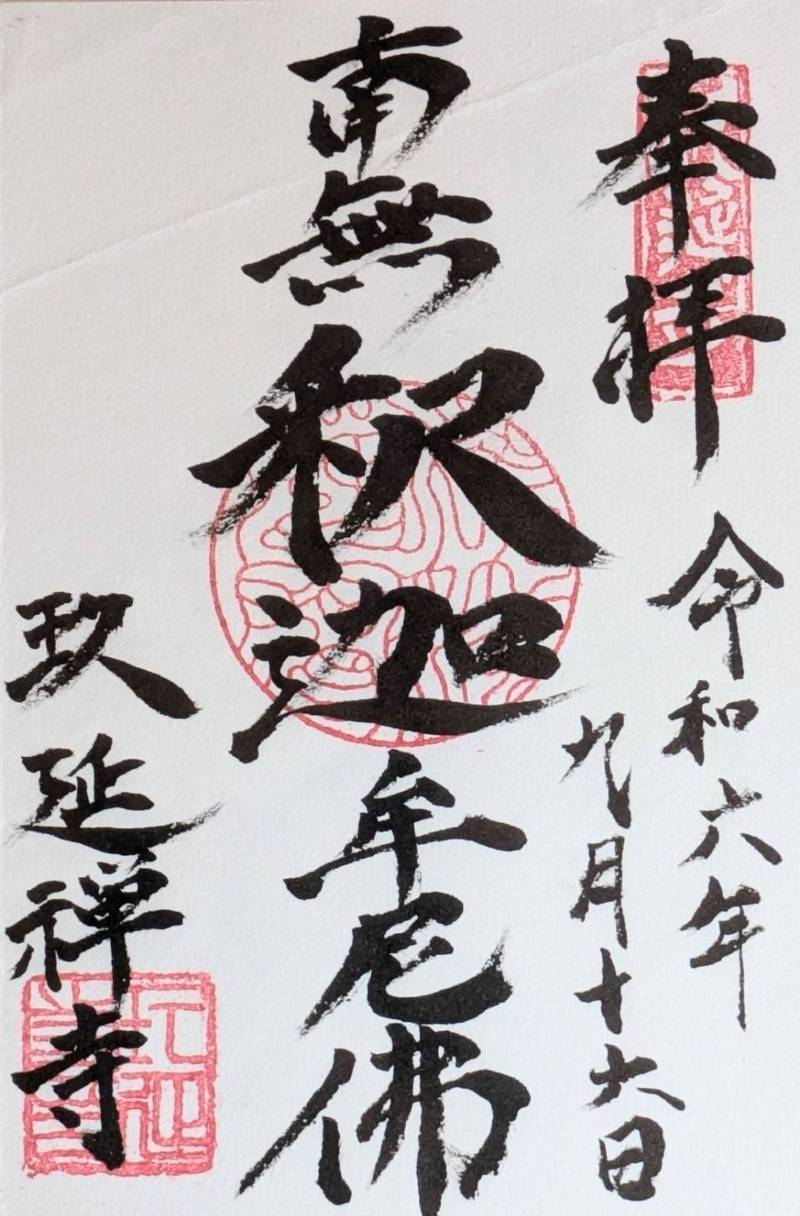 奉拝
令和六年
九月十六日
南無釈迦牟尼佛
玖延禅寺